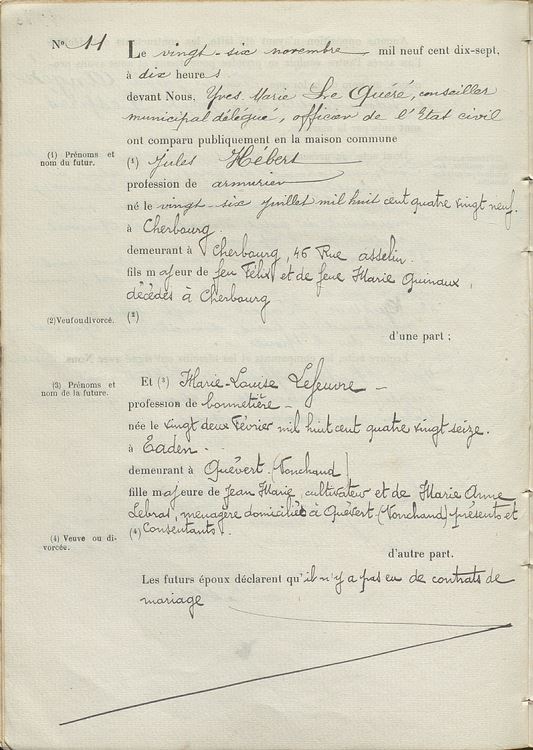 No 11
Le vingt-six novembre mil neuf cent dix-sept,
à dix heures
devant Nous, Yves Marie Le Quéré, conseiller
municipal délégué, officier de l'Etat civil
ont comparu publiquement en la maison commune
(1) Prénoms et nom du futur.
(1) Jules Hébert
profession de armurier
né le vingt-six Juillet mil huit cent quatre vingt neuf.
à Cherbourg.
demeurant à Cherbourg, 46 Rue asselin.
fils majeur de feu Félix et de feue Marie Quinaux,
décédés à Cherbourg
(2) Veuf ou divorcé.
(2)
d'une part ;
(3) Prénoms et nom de la future.
Et (3) Marie-Louise Lefeuvre
profession de bonnetière
née le vingt deux Février mil huit cent quatre vingt seize.
à Eaden.
demeurant à Quévert. (Vonchaud)
fille majeure de Jean Marie, cultivateur et de Marie Anne
Lebras, menagère domiciliés à Quévert. (Vonchaud) présents et
(4) Consentants.
(4) Veuve ou divorcée.
d'autre part.
Les futurs époux déclarent qu'il n'y a pas eu de contrats de
mariage